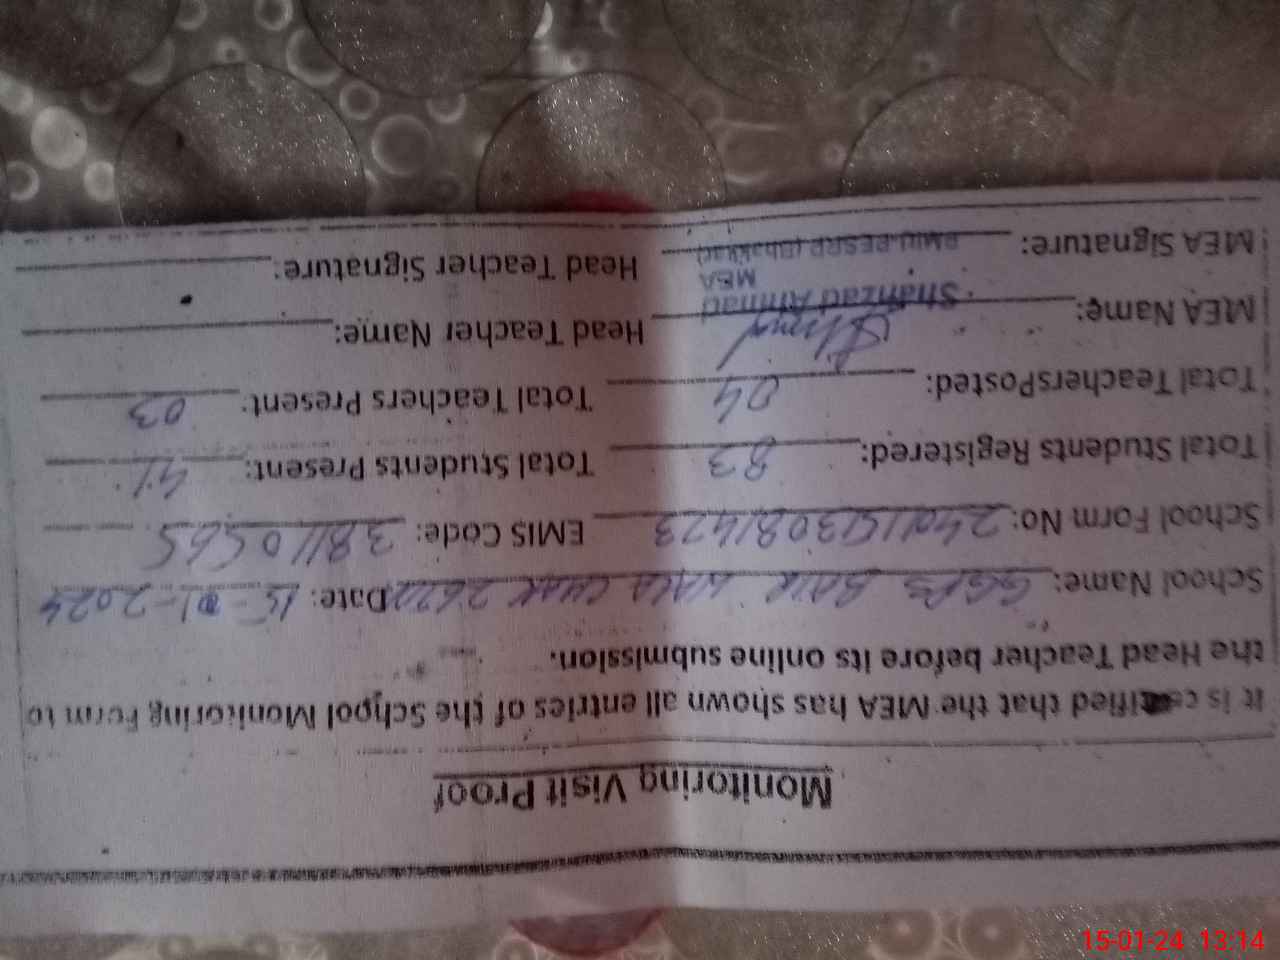 Monitoring Visit Proof
It is certified that the MEA has shown all entries of the School Monitoring Form to
the Head Teacher before its online submission.
School Name: GGPS BAIR WALA CHAK Date: 15-01-2024
School Form No: EMIS Code: 38110565
Total Students Registered: 83 Total Students Present: 41
Total TeachersPosted: 04 Total Teachers Present: 03
MEA Name: Shahzad Ahmad Head Teacher Name:
MEA
MEA Signature: PMIU-PESRP (Bhakkar) Head Teacher Signature:
15-01-24 13:14